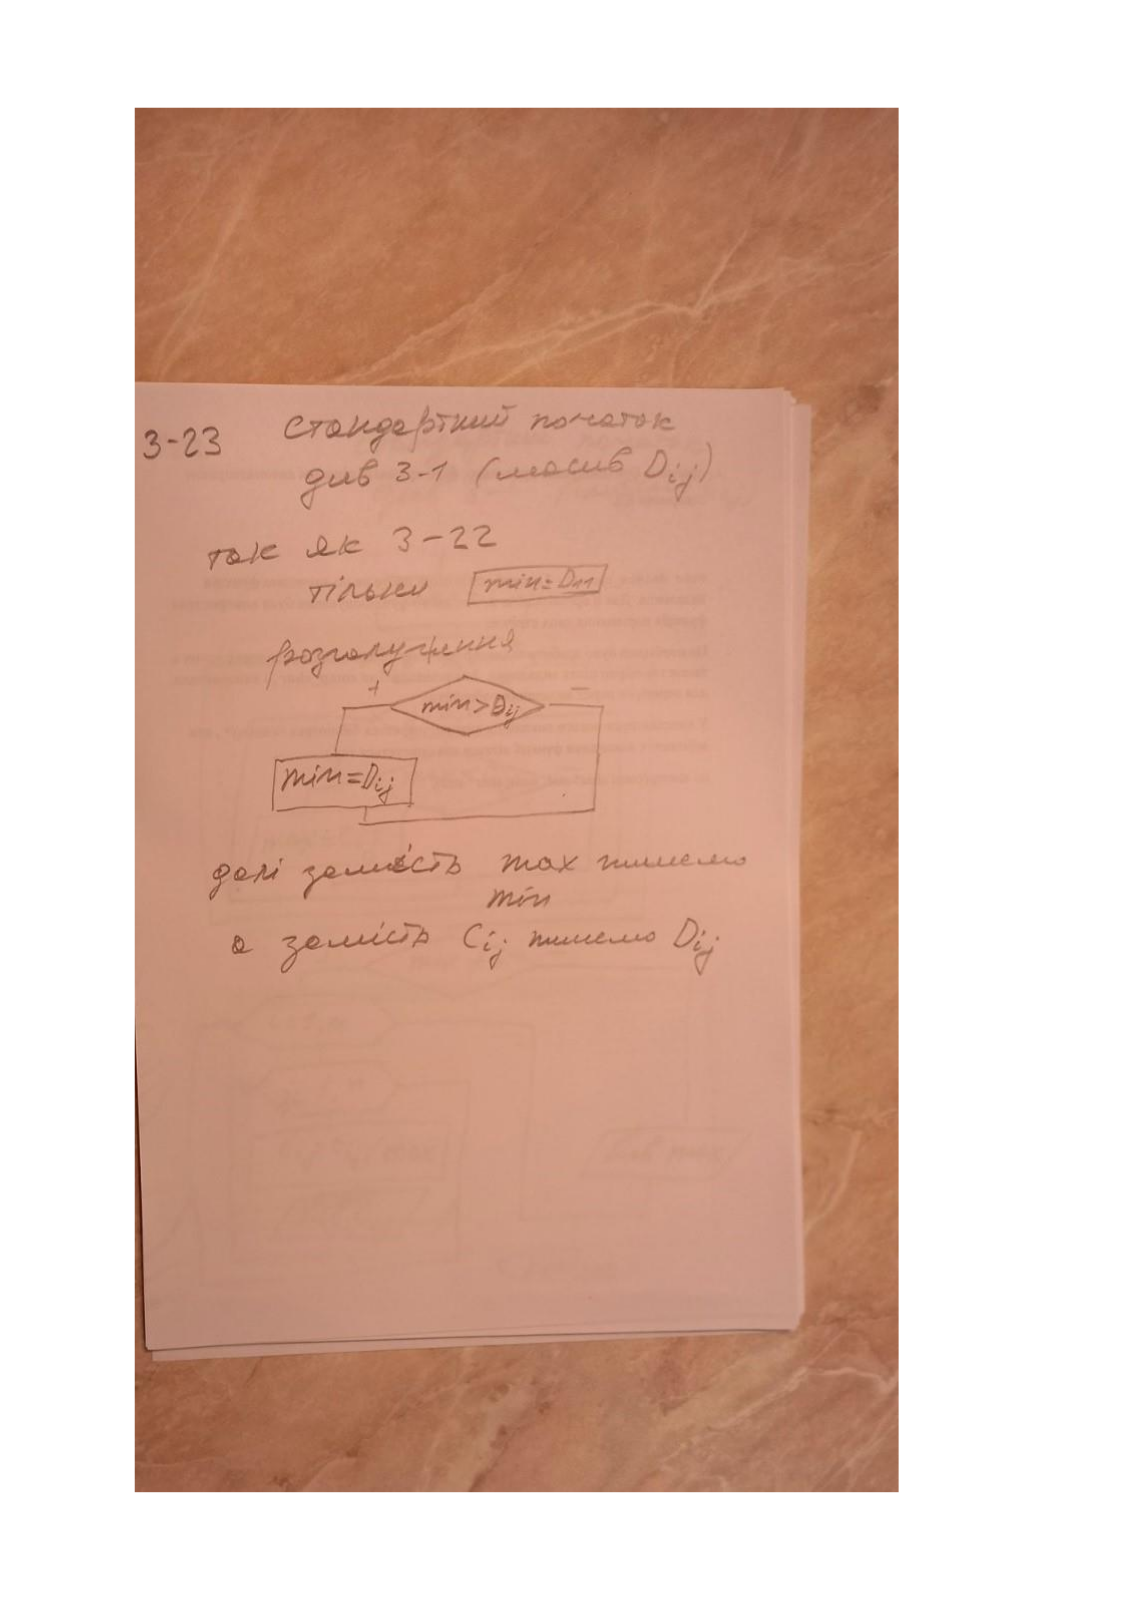 3-23 стандартний початок
див 3-1 (масив Dij)
так як 3-22
тільки min=D11
розгалуження
+ min>Dij -
min=Dij
далі замість max пишемо
min
а замість Cij пишемо Dij